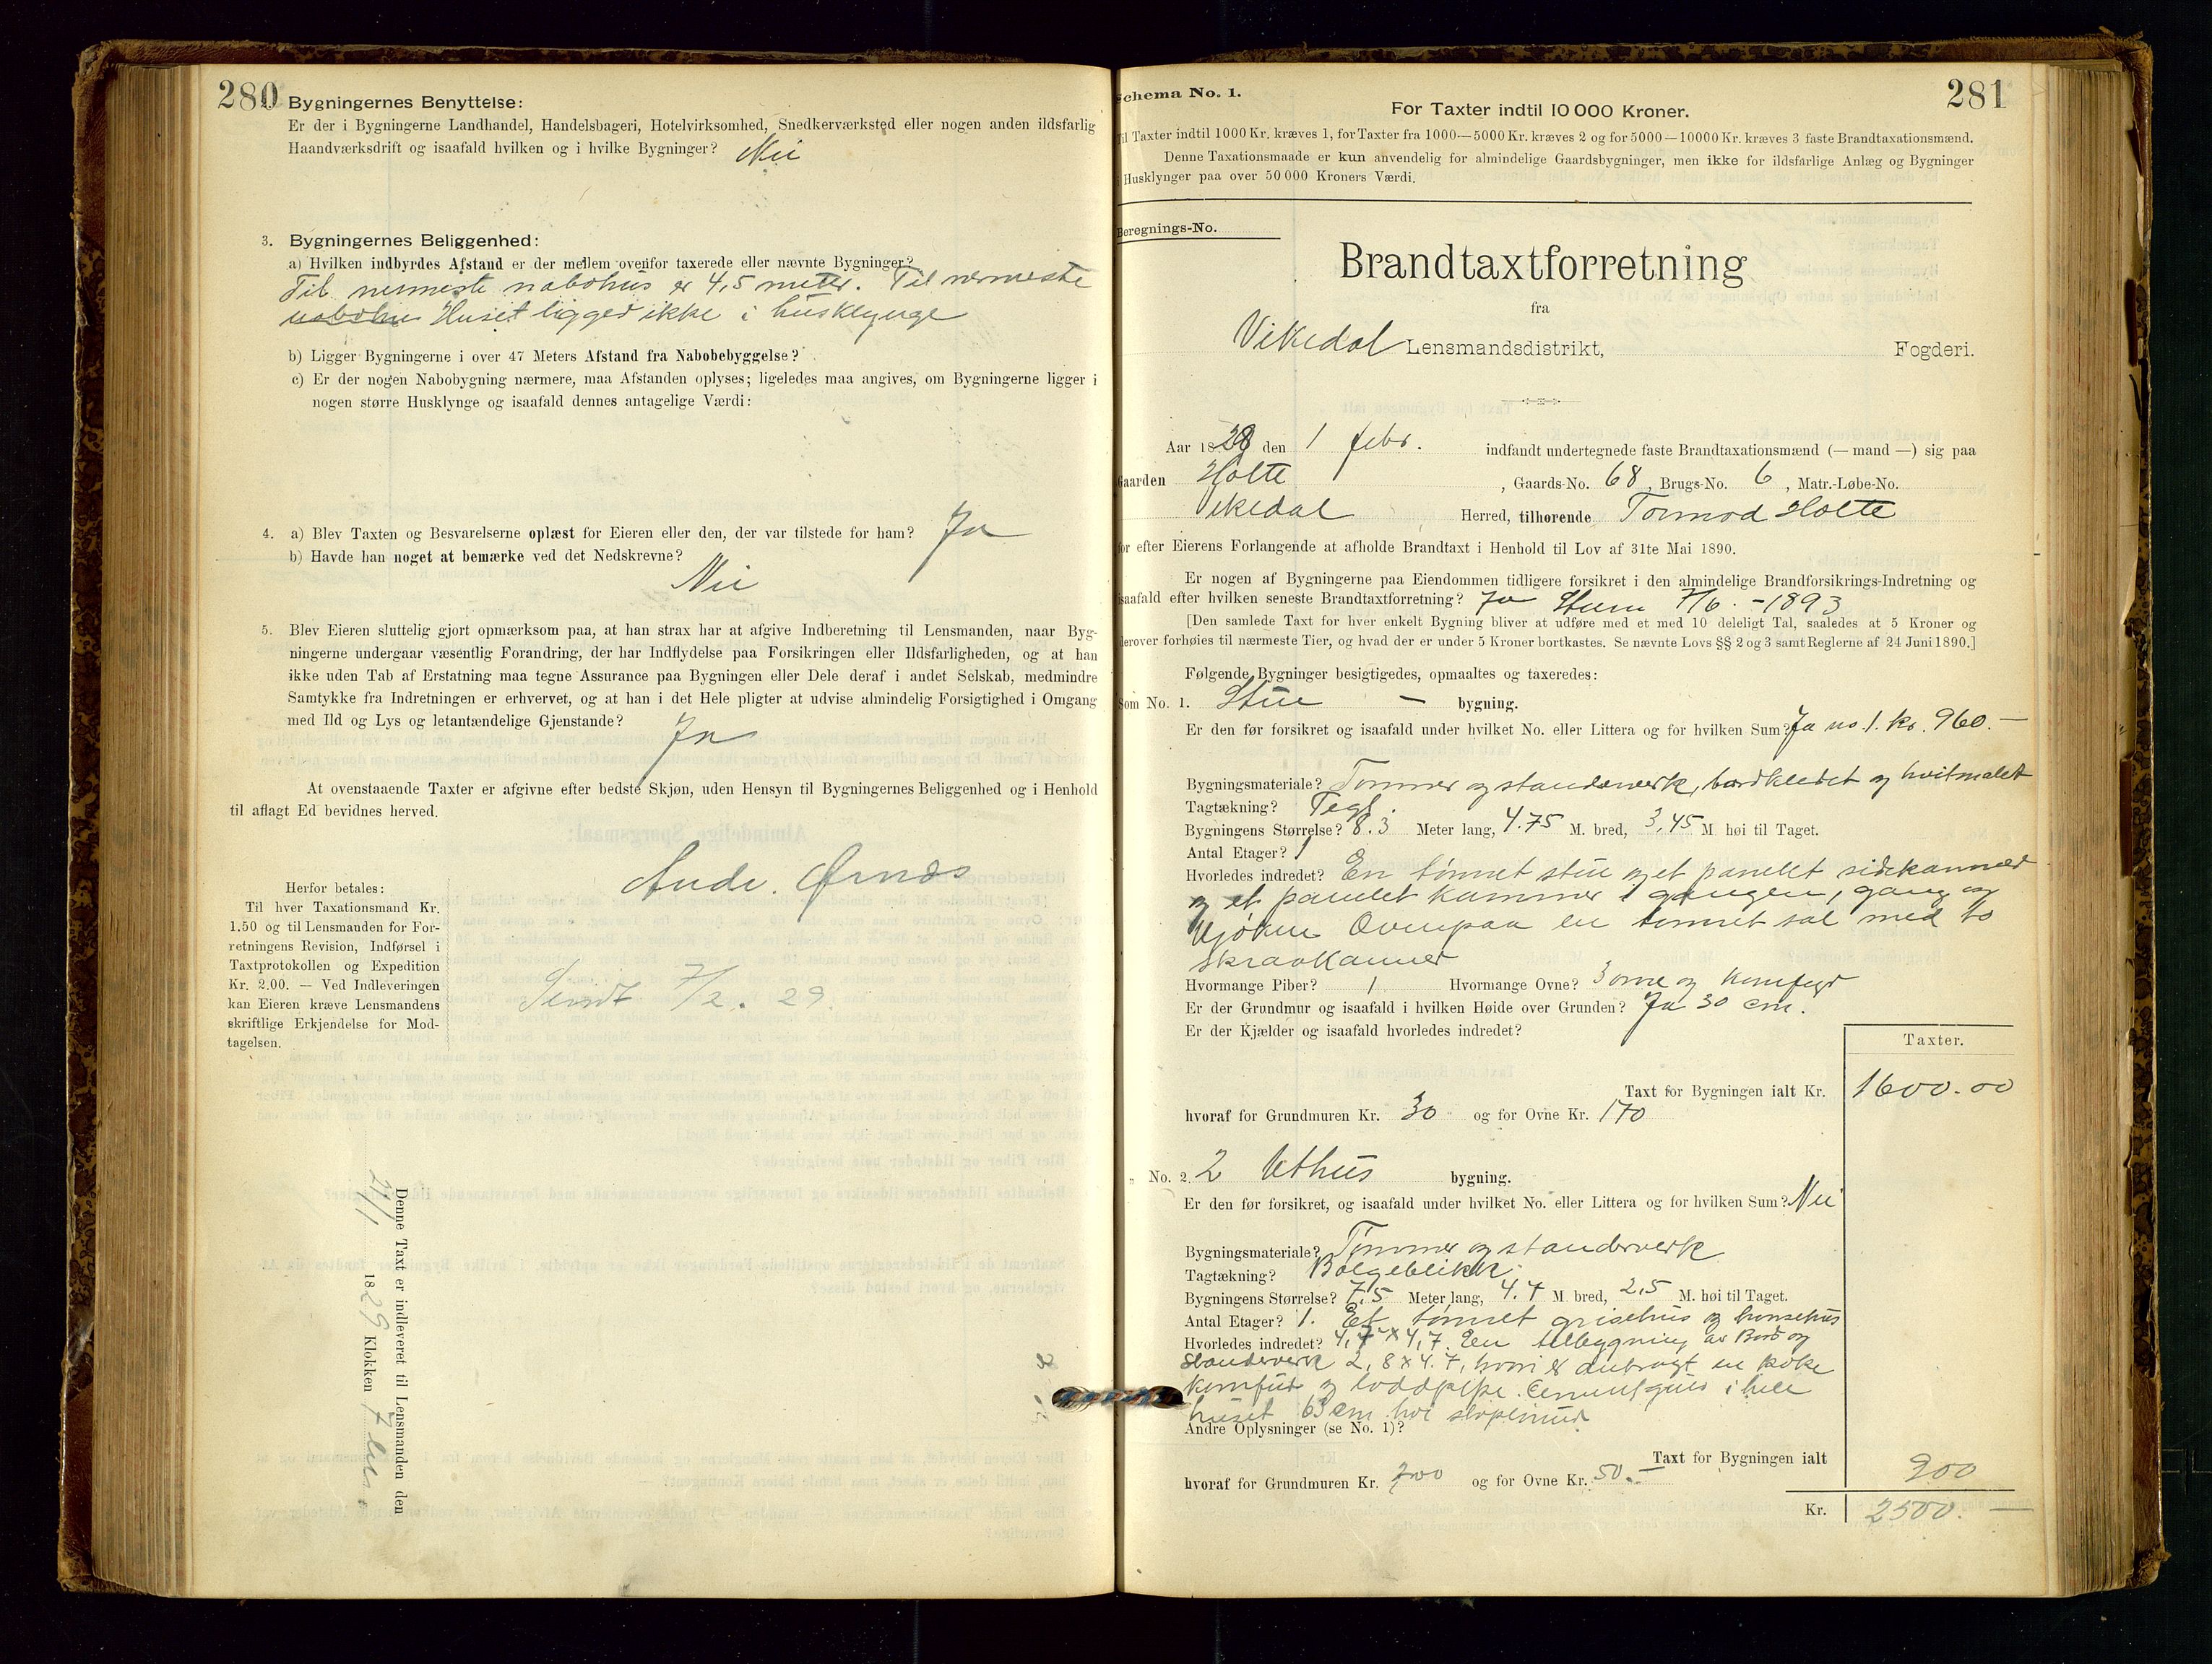 280
Bygningernes Benyttelse:
Er der i Bygningerne Landhandel, Handelsbageri, Hotelvirksomhed, Snedkerværksted eller nogen anden ildsfarlig
Haandværksdrift og isaafald hvilken og i hvilke Bygninger? Nei
3. Bygningernes Beliggenhed:
a) Hvilken indbyrdes Afstand er der mellem ovenfor taxerede eller nævnte Bygninger?
Til nermeste nabohus er 4,5 meter. Til nermeste
nabohu Huset ligged ikke i husklynge
b) Ligger Bygningerne i over 47 Meters Afstand fra Nabobebyggelse?
c) Er der nogen Nabobygning nærmere, maa Afstanden oplyses; ligeledes maa angives, om Bygningerne ligger i
nogen større Husklynge og isaafald dennes antagelige Værdi:
4. a) Blev Taxten og Besvarelserne oplæst for Eieren eller den, der var tilstede for ham? Ja
b) Havde han noget at bemærke ved det Nedskrevne?
Nei
5. Blev Eieren sluttelig gjort opmærksom paa, at han strax har at afgive Indberetning til Lensmanden, naar Byg-
ningerne undergaar væsentlig Forandring, der har Indflydelse paa Forsikringen eller Ildsfarligheden, og at han
ikke uden Tab af Erstatning maa tegne Assurance paa Bygningen eller Dele deraf i andet Selskab, medmindre
Samtykke fra Indretningen er erhvervet, og at han i det Hele pligter at udvise almindelig Forsigtighed i Omgang
med Ild og Lys og letantændelige Gjenstande?
Ja
At ovenstaaende Taxter er afgivne efter bedste Skjøn, uden Hensyn til Bygningernes Beliggenhed og i Henhold
til aflagt Ed bevidnes herved.
Herfor betales:
Til hver Taxationsmand Kr.
1.50 og til Lensmanden for For-
retningens Revision, Indførsel i
Taxtprotokollen og Expedition
Kr. 2.00. — Ved Indleveringen
kan Eieren kræve Lensmandens
skriftlige Erkjendelse for Mod-
tagelsen.
Sendt 7/2. 29.
Denne Taxt er indleveret til Lensmanden den
1829 Klokken 7
281
Schema No. 1.
For Taxter indtil 10 000 Kroner.
Til Taxter indtil 1000 Kr. kræves 1, for Taxter fra 1000—5000 Kr. kræves 2 og for 5000—10000 Kr. kræves 3 faste Brandtaxationsmænd.
Denne Taxationsmaade er kun anvendelig for almindelige Gaardsbygninger, men ikke for ildsfarlige Anlæg og Bygninger
i Husklynger paa over 50 000 Kroners Værdi.
Beregnings-No.
Brandtaxtforretning
fra
Vikedal Lensmandsdistrikt, Fogderi.
Aar 1828 den 1 febr. indfandt undertegnede faste Brandtaxationsmænd (— mand —) sig paa
Gaarden Holte, Gaards-No. 68, Brugs-No. 6, Matr.-Løbe-No.
Vikedal Herred, tilhørende Tormod Holte
for efter Eierens Forlangende at afholde Brandtaxt i Henhold til Lov af 31te Mai 1890.
Er nogen af Bygningerne paa Eiendommen tidligere forsikret i den almindelige Brandforsikrings-Indretning og
isaafald efter hvilken seneste Brandtaxtforretning? Ja 7/6. - 1893
[Den samlede Taxt for hver enkelt Bygning bliver at udføre med et med 10 deleligt Tal, saaledes at 5 Kroner og
derover forhøies til nærmeste Tier, og hvad der er under 5 Kroner bortkastes. Se nævnte Lovs §§ 2 og 3 samt Reglerne af 24 Juni 1890.]
Følgende Bygninger besigtigedes, opmaaltes og taxeredes:
Som No. 1. Stue — bygning.
Er den før forsikret og isaafald under hvilket No. eller Littera og for hvilken Sum? Ja no 1. kr. 960.—
Bygningsmateriale? Tømmer og standerverk, bordkledet og hvitmalet
Tagtækning? Tegl.
Bygningens Størrelse? 8.3 Meter lang, 4.75 M. bred, 3,45 M høi til Taget.
Antal Etager? 1
Hvorledes indredet? En tømret stue og et panelet sidekammed
og et panelet kammer i gangen, gang og
kjøken Ovenpaa en tømret sal med to
skraakamer
Hvormange Piber? 1 Hvormange Ovne? 3 ovne og komfyr
Er der Grundmur og isaafald i hvilken Høide over Grunden? Ja 30 cm.
Er der Kjælder og isaafald hvorledes indredet?
Taxter.
Taxt for Bygningen ialt Kr. 1600.00
hvoraf for Grundmuren Kr. 30 og for Ovne Kr. 170
No. 2. 2 Uthus bygning.
Er den før forsikret, og isaafald under hvilket No. eller Littera og for hvilken Sum? Nei
Bygningsmateriale? Tømmer og standerverk
Tagtækning? Bølgeblikk.
Bygningens Størrelse? 7,5 Meter lang, 4.7 M bred, 2,5 M. høi til Taget.
Antal Etager? 1. Et tømret grisehus og hønsehus
Hvorledes indredet? 4,7 x 4,7. En tilbygning av Bord og
standerverk 2,8 x 4.7, hvori er anbragt en koke
komfur og loddpipe. i hele
huset 63 cm høi
Andre Oplysninger (se No. 1)?
Taxt for Bygningen ialt 900
hvoraf for Grundmuren Kr. 200 og for Ovne Kr. 50.—
Kr. 2500.—